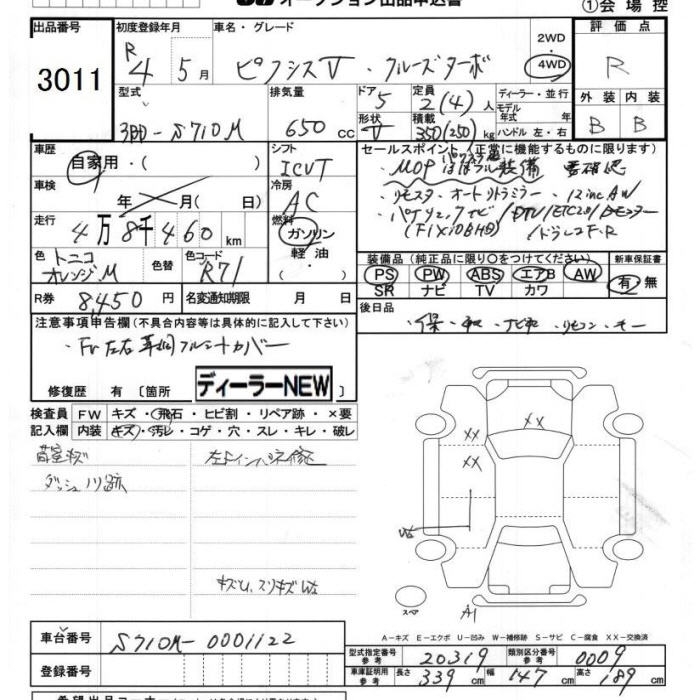 オークション出品申込書
①会場控
出品番号
初度登録年月
車名・グレード
2WD
4WD
評価点
3011
R
4 5月
ピクシスV・クルーズターボ
R
型式
排気量
ドア
定員
ディーラー・並行
外装
内装
3BD-S710M
650cc
5
2(4)人
モデル年式 年
B
B
形状
積載
V
350(250)kg
ハンドル 左・右
車歴
シフト
セールスポイント (正常に機能するものに限ります)
自家用・( )
ICVT
装備
車検
冷房
・リモスタ・オートリトラミラー・12incAW
年 月( 日)
AC
走行
燃料
4万8千460km
ガソリン
(F1X10BHD)
/ドラレコF・R
軽油
色
色替
色コード
装備品 (純正品に限り○をつけてください)
新車保証書
トニコオレンジ.M
R71
PS PW ABS エアB AW
有・無
SR ナビ TV カワ
R券
8,450円
名変通知期限
月 日
後日品
注意事項申告欄 (不具合内容等は具体的に記入して下さい)
・保・取・ナビ取・リモコン・キー
修復歴 有 [箇所
ディーラーNEW
検査員
FW
キズ・飛石・ヒビ割・リペア跡・×要
記入欄
内装
キズ・汚レ・コゲ・穴・スレ・キレ・破レ
荷室キズ
ダッシュノリ跡
XX
XX
XX
W2
キズU、スリキズW2
スペア
A1
A-キズ E-エクボ U-凹み W-補修跡 S-サビ C-腐食 XX-交換済
車台番号
S710M-0001122
型式指定番号 参考
20319
類別区分番号 参考
0009
登録番号
車庫証明用 参考
長さ
339cm
幅
147cm
高さ
189cm